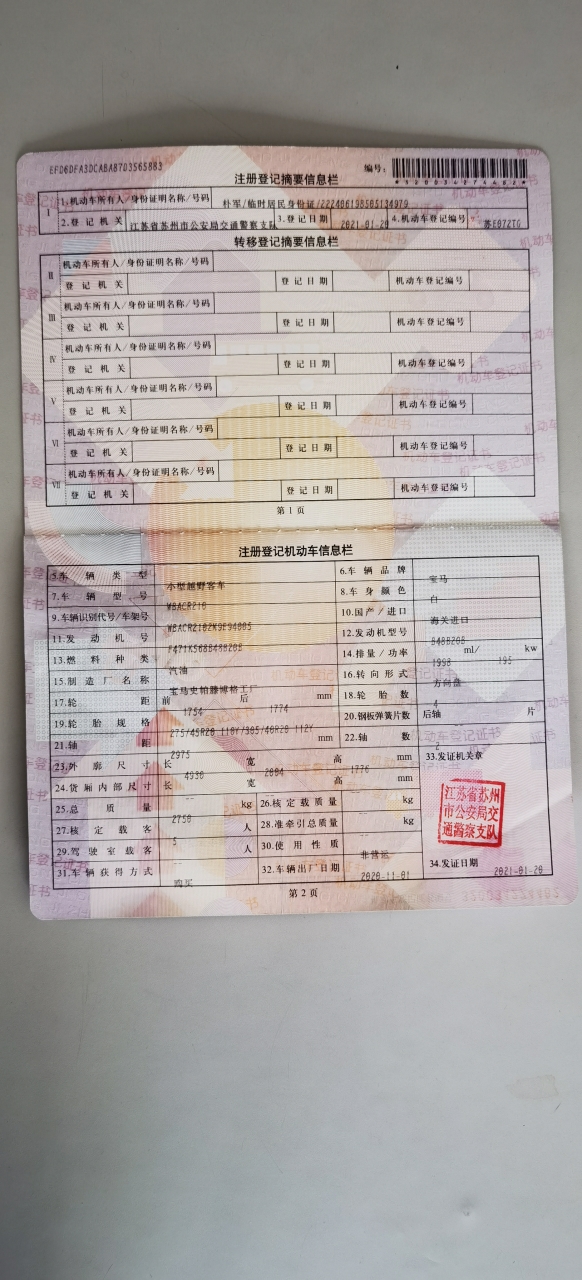 EFD6DFA3DCABAB703565883
编号:
*320034274402*
注册登记摘要信息栏
Ⅰ 1.机动车所有人/身份证明名称/号码 朴军/临时居民身份证/222406198505134979
2.登记机关 江苏省苏州市公安局交通警察支队 3.登记日期 2021-01-20 4.机动车登记编号 苏E072TG
转移登记摘要信息栏
Ⅱ 机动车所有人/身份证明名称/号码
登记机关 登记日期 机动车登记编号
Ⅲ 机动车所有人/身份证明名称/号码
登记机关 登记日期 机动车登记编号
Ⅳ 机动车所有人/身份证明名称/号码
登记机关 登记日期 机动车登记编号
Ⅴ 机动车所有人/身份证明名称/号码
登记机关 登记日期 机动车登记编号
Ⅵ 机动车所有人/身份证明名称/号码
登记机关 登记日期 机动车登记编号
Ⅶ 机动车所有人/身份证明名称/号码
登记机关 登记日期 机动车登记编号
第1页
注册登记机动车信息栏
5.车辆类型 小型越野客车 6.车辆品牌 宝马
7.车辆型号 WBACR210 8.车身颜色 白
9.车辆识别代号/车架号 10.国产/进口 海关进口
11.发动机号 F471K568B48B20B 12.发动机型号 B48B20B
13.燃料种类 汽油 14.排量/功率 1998 ml/ 195 kw
15.制造厂名称 宝马史帕滕博格工厂 16.转向形式 方向盘
17.轮距 前 1754 后 1774 mm 18.轮胎数 4
19.轮胎规格 275/45R20 110Y/305/40R20 112Y 20.钢板弹簧片数 后轴 片
21.轴距 2975 mm 22.轴数 2
23.外廓尺寸 长 4938 宽 2004 高 1776 mm 33.发证机关章
24.货厢内部尺寸 长 宽 高 mm
25.总质量 2750 kg 26.核定载质量 kg
27.核定载客 5 人 28.准牵引总质量 kg
29.驾驶室载客 人 30.使用性质 非营运
31.车辆获得方式 购买 32.车辆出厂日期 2020-11-01 34.发证日期 2021-01-20
江苏省苏州
市公安局交
通警察支队
第2页